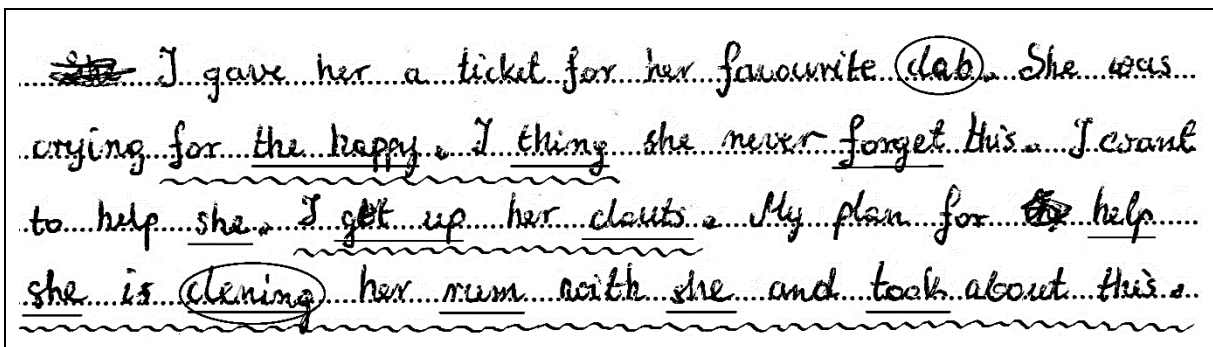 I gave her a ticket for her favourite clab. She was
crying for the happy. I thing she never forget this. I want
to help she. I get up her clauts. My plan for help
she is clening her rum with she and took about this.